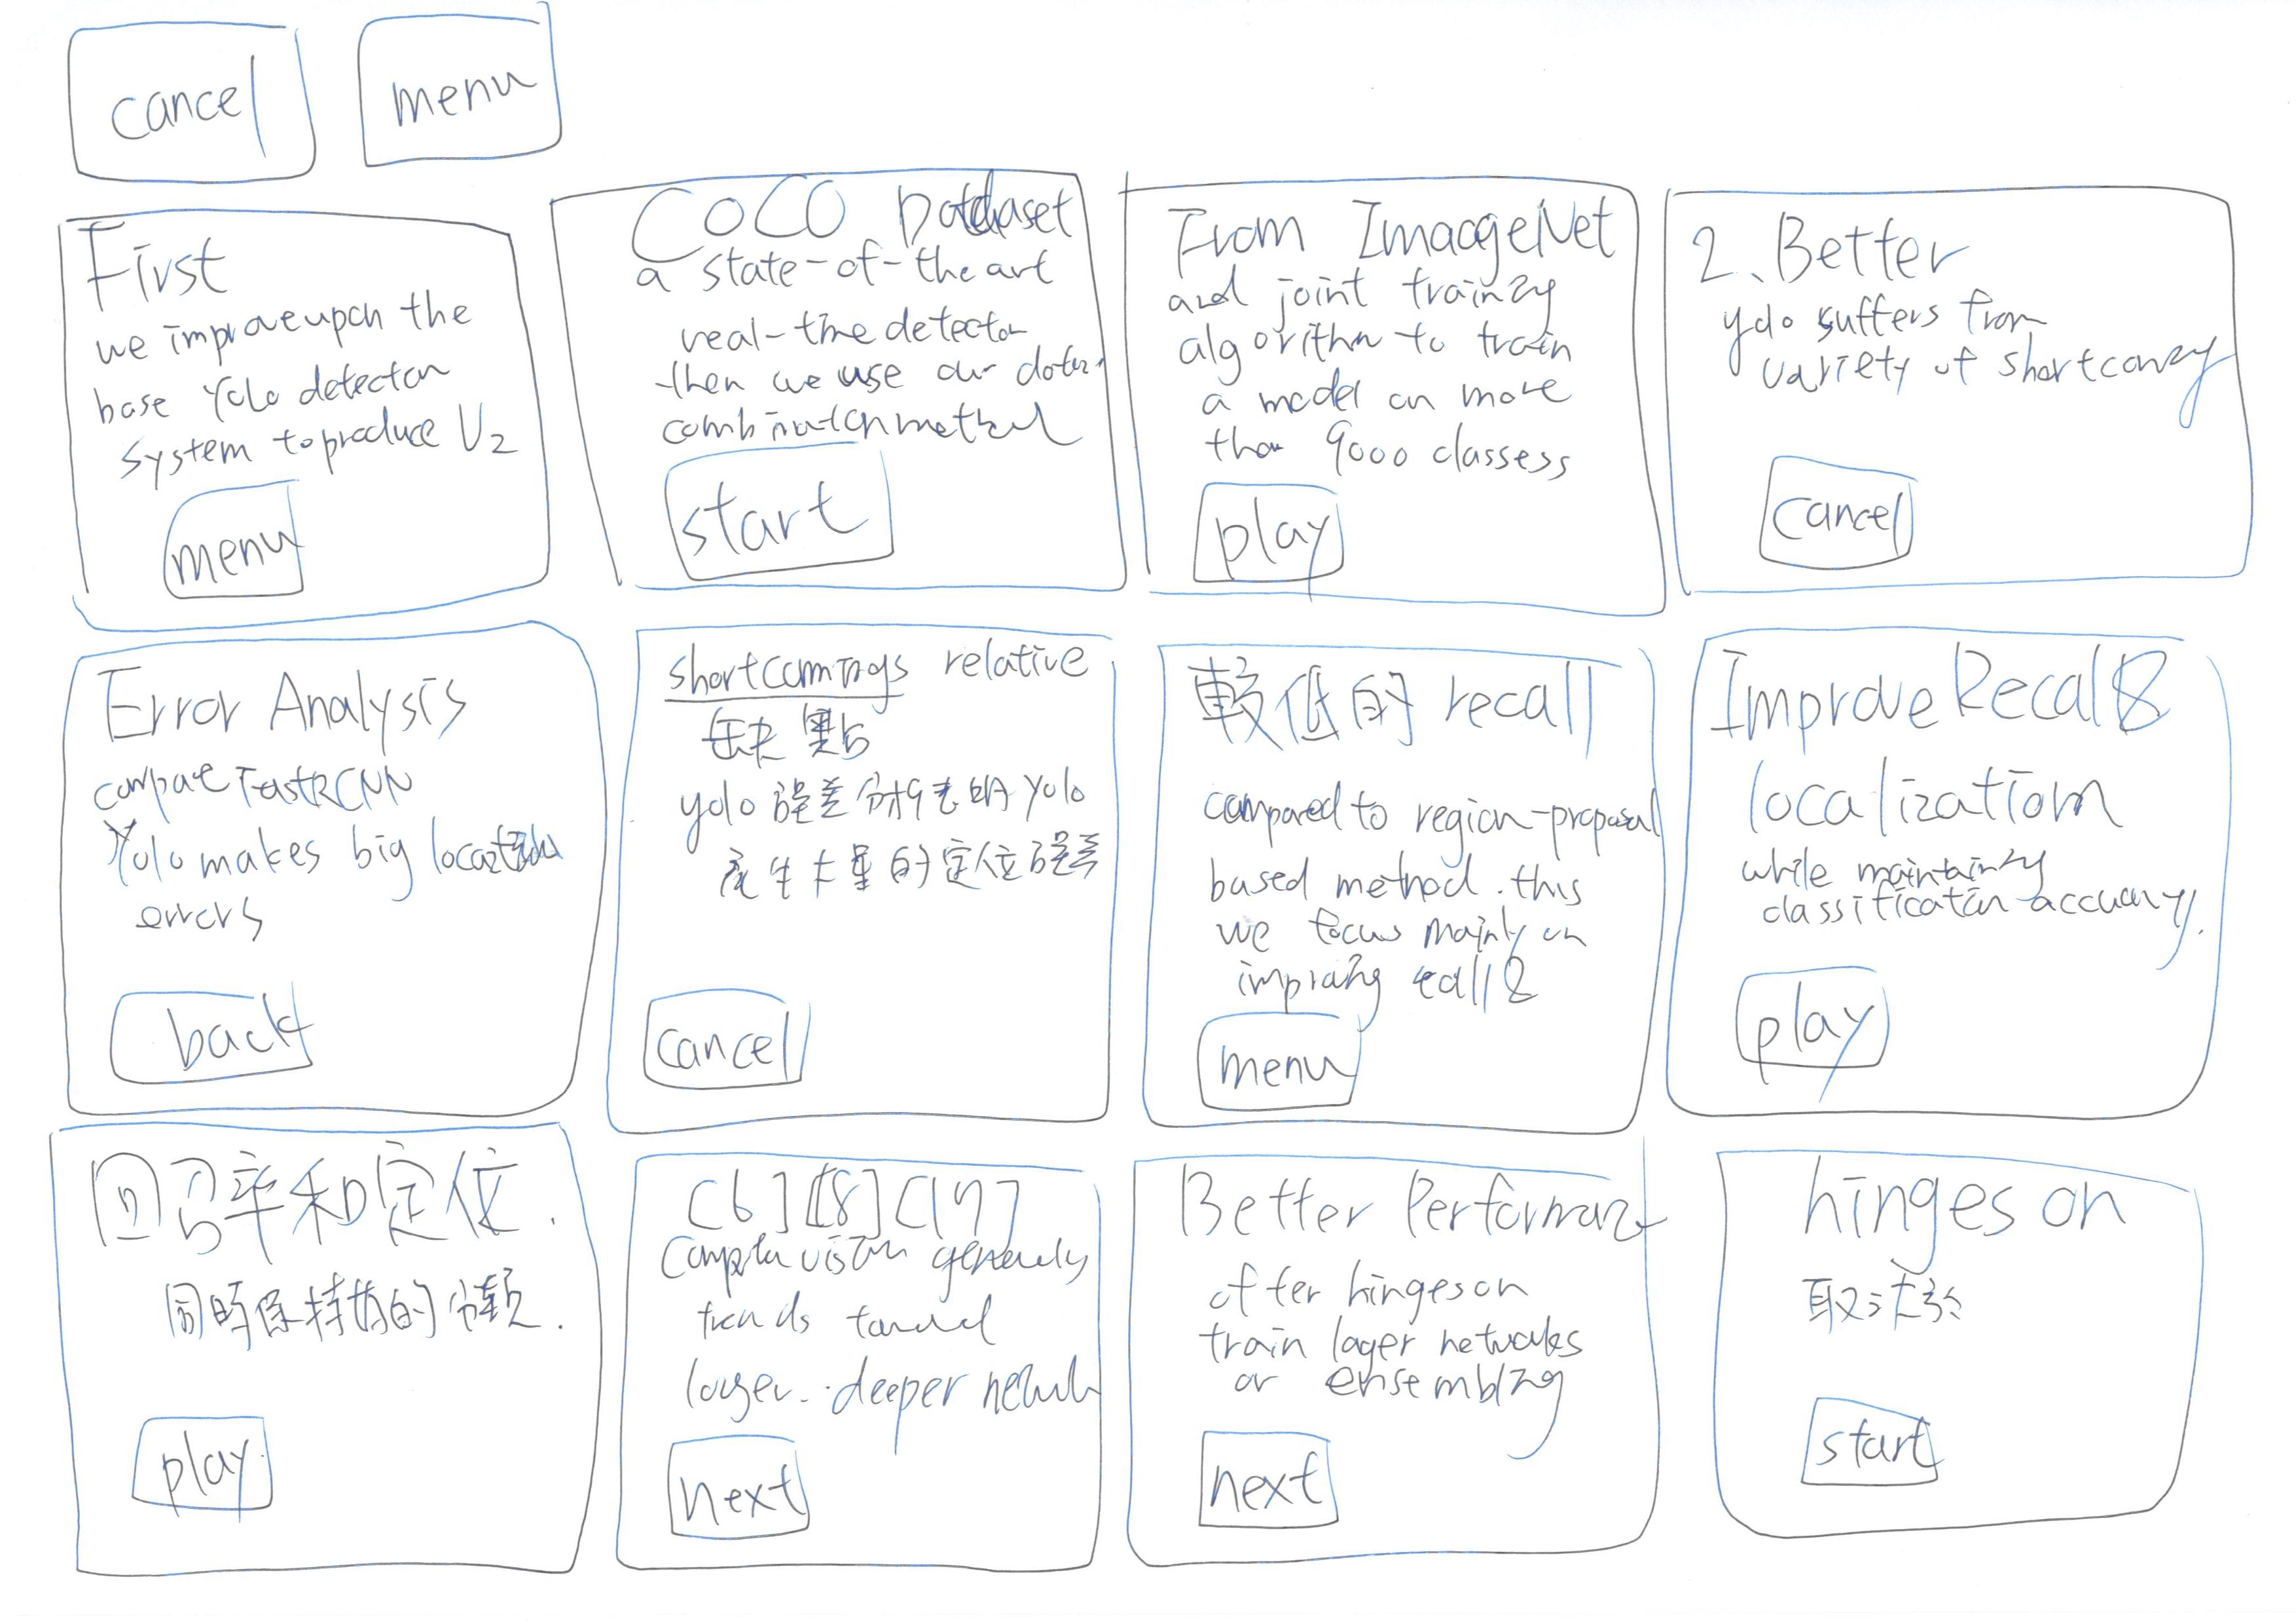 cancel
menu
First
we improve upon the
base Yolo detector
system to produce V2
menu
COCO Dataset
a state-of-the art
real-time detector
then we use our data
combination method
start
From ImaageNet
and joint training
algorithm to train
a model on more
than 9000 classess
play
2. Better
yolo suffers from
variety of shortcoming
cancel
Error Analysis
compare FastRCNN
Yolo makes big location
errors
back
shortcomings relative
缺點
yolo 誤差分析表明 Yolo
產生大量的定位誤差
cancel
較低的 recall
compared to region-proposal
based method. this
we focus mainly on
improving &
menu
Improve Recall &
localization
while maintaining
classification accuracy.
play
回召率和定位.
同時保持的分類.
play
[6][8][17]
Computer vision generally
trends toward
larger. deeper network
next
Better Performance
often hinges on
train lager networks
or ensembling
next
hinges on
取決於
start